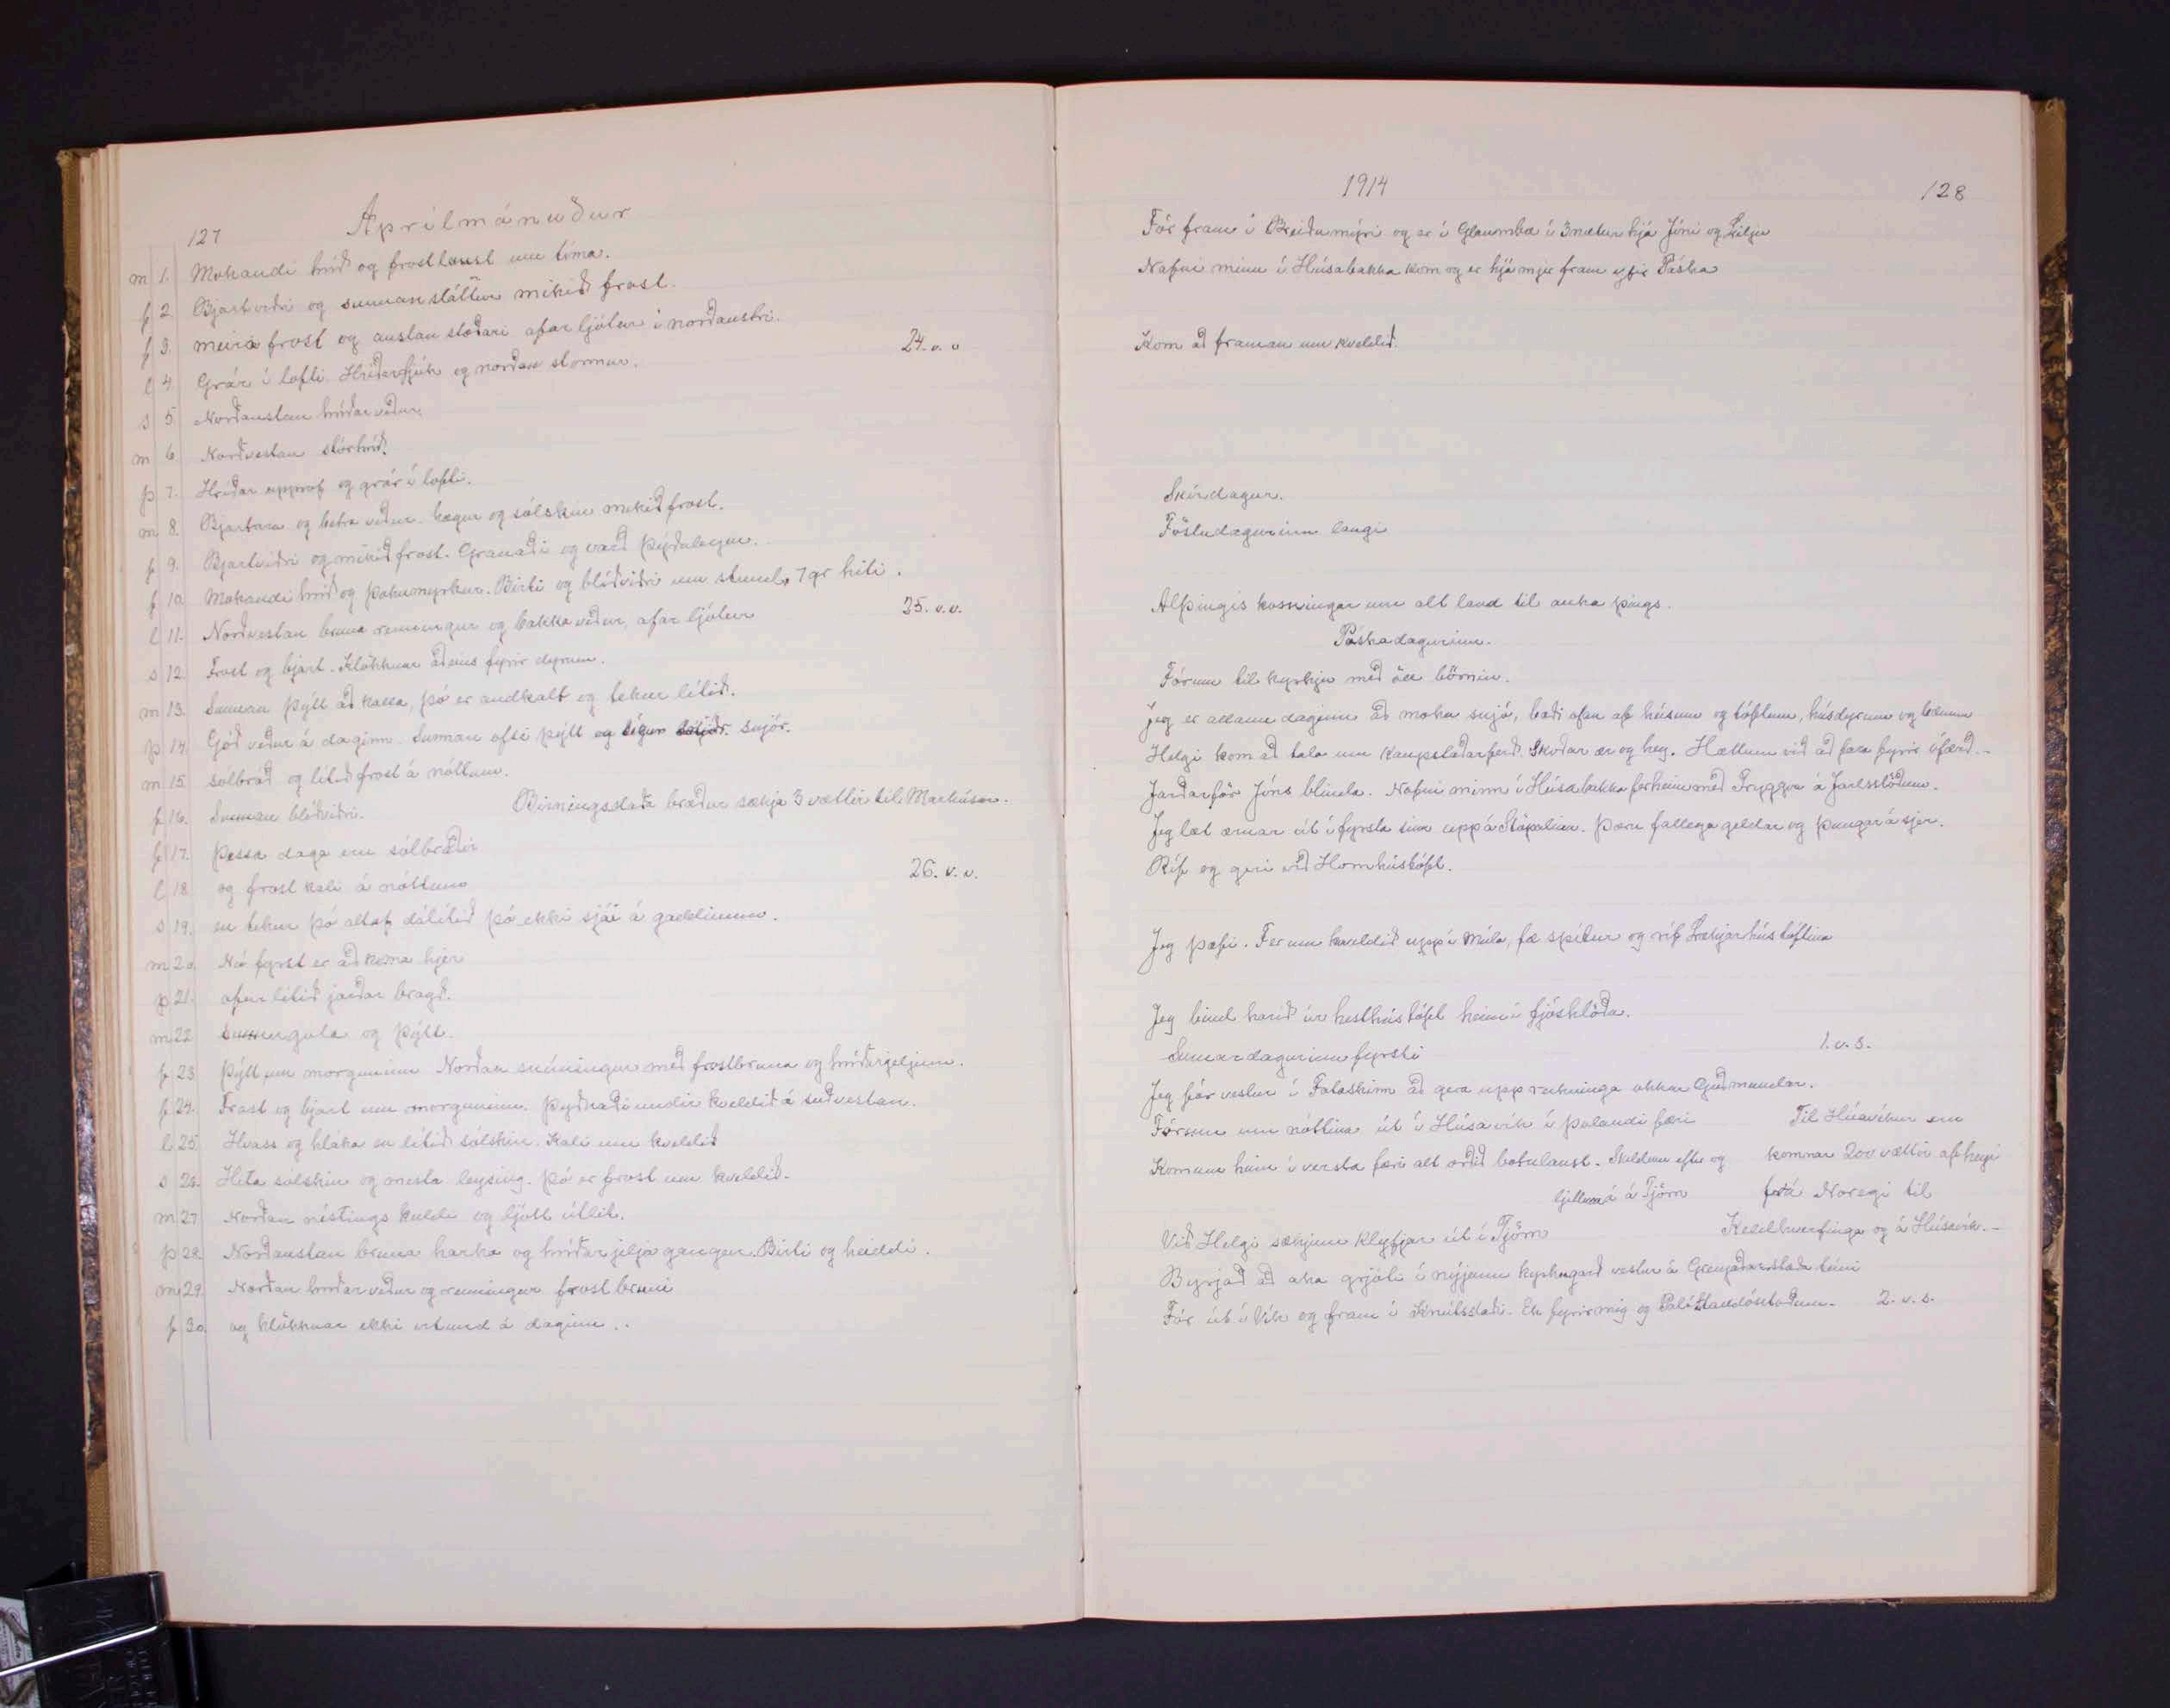 127
Aprílmánuður
m 1. Mokandi hríð og frostlaust um tíma.
f 2. Bjartviðri og sunnan sláttur mikið frost.
f 3. meira frost og austan stoðari afar ljótur í norðaustri.
l 4. Grár í lofti. Hríðarfjúk og norðan stormur. 24. v. v
s 5 Norðaustan hríðarveður.
m 6 Norðvestan stórhríð.
þ 7. Hríðar upprof og grár í lofti.
m 8. Bjartara og betra veður. hægur og sólskin mikið frost.
f 9. Bjartviðri og mikið frost. Gránaði og varð þýðulegur.
f 10 Mokandi hríð og þokumyrkur. Birti og blíðviðri um stund, 7 gr hiti.
l 11. Norðvestan bruna renningur og bakkaveður, afar ljótur 25. v. v.
s 12. Frost og bjart. Klökknar aðeins fyrir dyrum.
m 13. Sunnan þýtt að kalla, þó er andkalt og tekur lítið.
þ 14. Góð veður á daginn. Sunnan ofti þýtt og sígur snjór.
m 15 sólbráð og lítið frost á nóttum.
f 16. Sunnan blíðviðri. Birningsstaða bræður sækja 3 vættir til Markúsar.
f 17. þessa daga eru sólbráðir
l 18 og frost kali á nóttum 26. v. v.
s 19. en tekur þó altaf dálítið þó ekki sjái á gaddinum.
m 20 Nú fyrst er að koma hjer
þ 21. afar lítið jarðar bragð.
m 22 Sunnangola og þýtt.
f 23 þýtt um morguninn Norðan snúningur með frostbruna og hríðarjeljum.
f 24. Frost og bjart um morguninn. þyðnaði undir kveldið á suðvestan.
l 25. Hvass og hláka en lítið sólskin. Kali um kveldið
s 26. Hita sólskin og mesta leysing. þó er frost um kveldið.
m 27 Norðan nístings kuldi og ljótt útlit.
þ 28. Norðaustan bruna harka og hríðar jeljagangur. Birti og heiddi.
m 29. Norðan hríðarveður og renningur frost bruni
f 30. og klökknar ekki vitund á daginn..
1914
128
Fór fram í Breiðumýri og er í Glaumbæ í 3 nætur hjá Jóni og Lilju
Nafni minn í Húsabakka kom og er hjá mjer fram yfir Páska
Kom að framan um kveldið.
Skírdagur.
Föstudagurinn langi
Alþingis kosningar um alt land til auka þings.
Páskadagurinn.
Fórum til kyrkju með öll börnin.
Jeg er allann daginn að moka snjó, bæði ofan af húsum og tóftum, húsdyrum og
Helgi kom að tala um kaupstaðarferð. Skoðar ær og hey. Hættum við að fara fyrir ófærð.-
Jarðarför Jóns blinda. Nafni minn í Húsabakka fer heim með Tryggva á Jarlsstöðum.
Jeg læt ærnar út í fyrsta sinn uppá Stöpulinn. þær fallega geldar og þungar á sjer.
Ríf og geri við Hornhústóft.
Jeg þæfi. Fer um kveldið upp í Múla, fæ spítur og ríf Lækjarhústóftina
Jeg bind heið úr hesthústóft heim í fjóshlöðu.
Sumardagurinn fyrsti 1. v. s.
Jeg fór vestur í Fataskinn að gera upp reikninga okkar Guðmundar.
Fórum um nóttina út í Húsavík í þolandi færi Til Húsavíkur eru
Komum heim í versta færi alt orðið botulaust. Skildum eftir og komnar 200 vættir af heyi
á Tjörn frá Noregi til
Við Helgi sækjum klyfjar út í Tjörn Keldhverfinga og á Húsavík.-
Byrjað að aka grjóti í nýjann kyrkugarð vestur á Grenjaðarstaða túni
Fór út í Vík og fram í Knútsstaði. Ek fyrir mig og Pál á Staðólsstöðum. 2. v. s.